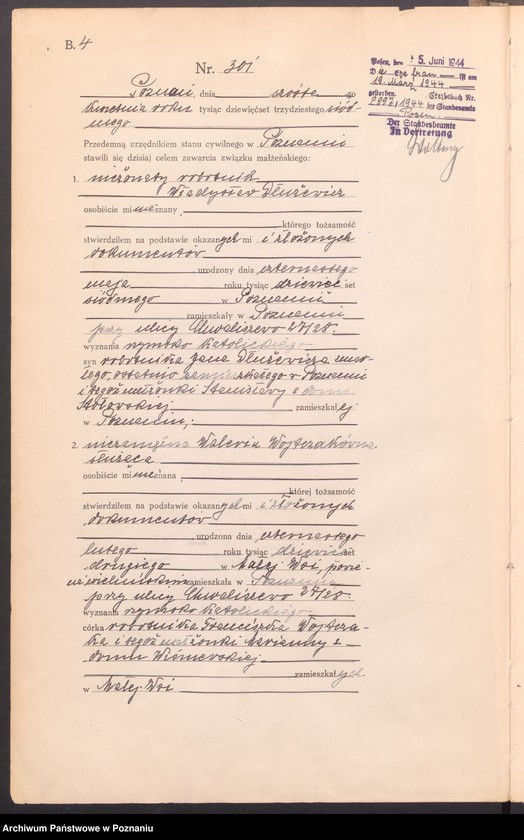 B. 4
Nr. 301
Poznań, dnia szóste go
kwietnia roku tysiąc dziewięćset trzydziestego siód-
mego
Przedemną urzędnikiem stanu cywilnego w Poznaniu
stawili się dzisiaj celem zawarcia związku małżeńskiego:
1. nieżonaty robotnik
Władysław Dłużewicz
osobiście mi nieznany,
, którego tożsamość
stwierdziłem na podstawie okazanych mi i złożonych
dokumentów
, urodzony dnia czternastego
maja roku tysiąc dziewięć set
siódmego w Poznaniu
zamieszkały w Poznaniu
przy ulicy Chwaliszewo 27/28.
wyznania rzymsko katolickiego
syn robotnika Jana Dłużewicza zmar-
łego, ostatnio zamieszkałego w Poznaniu
i tegoż małżonki Stanisławy z domu
zamieszkałej
w Poznaniu;
2. niezamężna Waleria Wojtczakówna
służąca
osobiście mi nieznana,
, której tożsamość
stwierdziłem na podstawie okazanych mi i złożonych
dokumentów
, urodzona dnia czternastego
lutego roku tysiąc dziewięć set
drugiego w Małej Wsi, powie-
zamieszkała w Poznaniu
przy ulicy Chwaliszewo 27/28.
wyznania rzymsko katolickiego
córka robotnika Franciszka Wojtcza-
ka i tegoż małżonki Marianny z
domu Wiśniewskiej
zamieszkałych
w Małej Wsi
Posen, den 5. Juni 1944
Die Ehefrau ist am
19. März 1944
gestorben. Sterbebuch Nr.
1944 des Standesamts
Posen.
Der Standesbeamte
In Vertretung
Archiwum Państwowe w Poznaniu